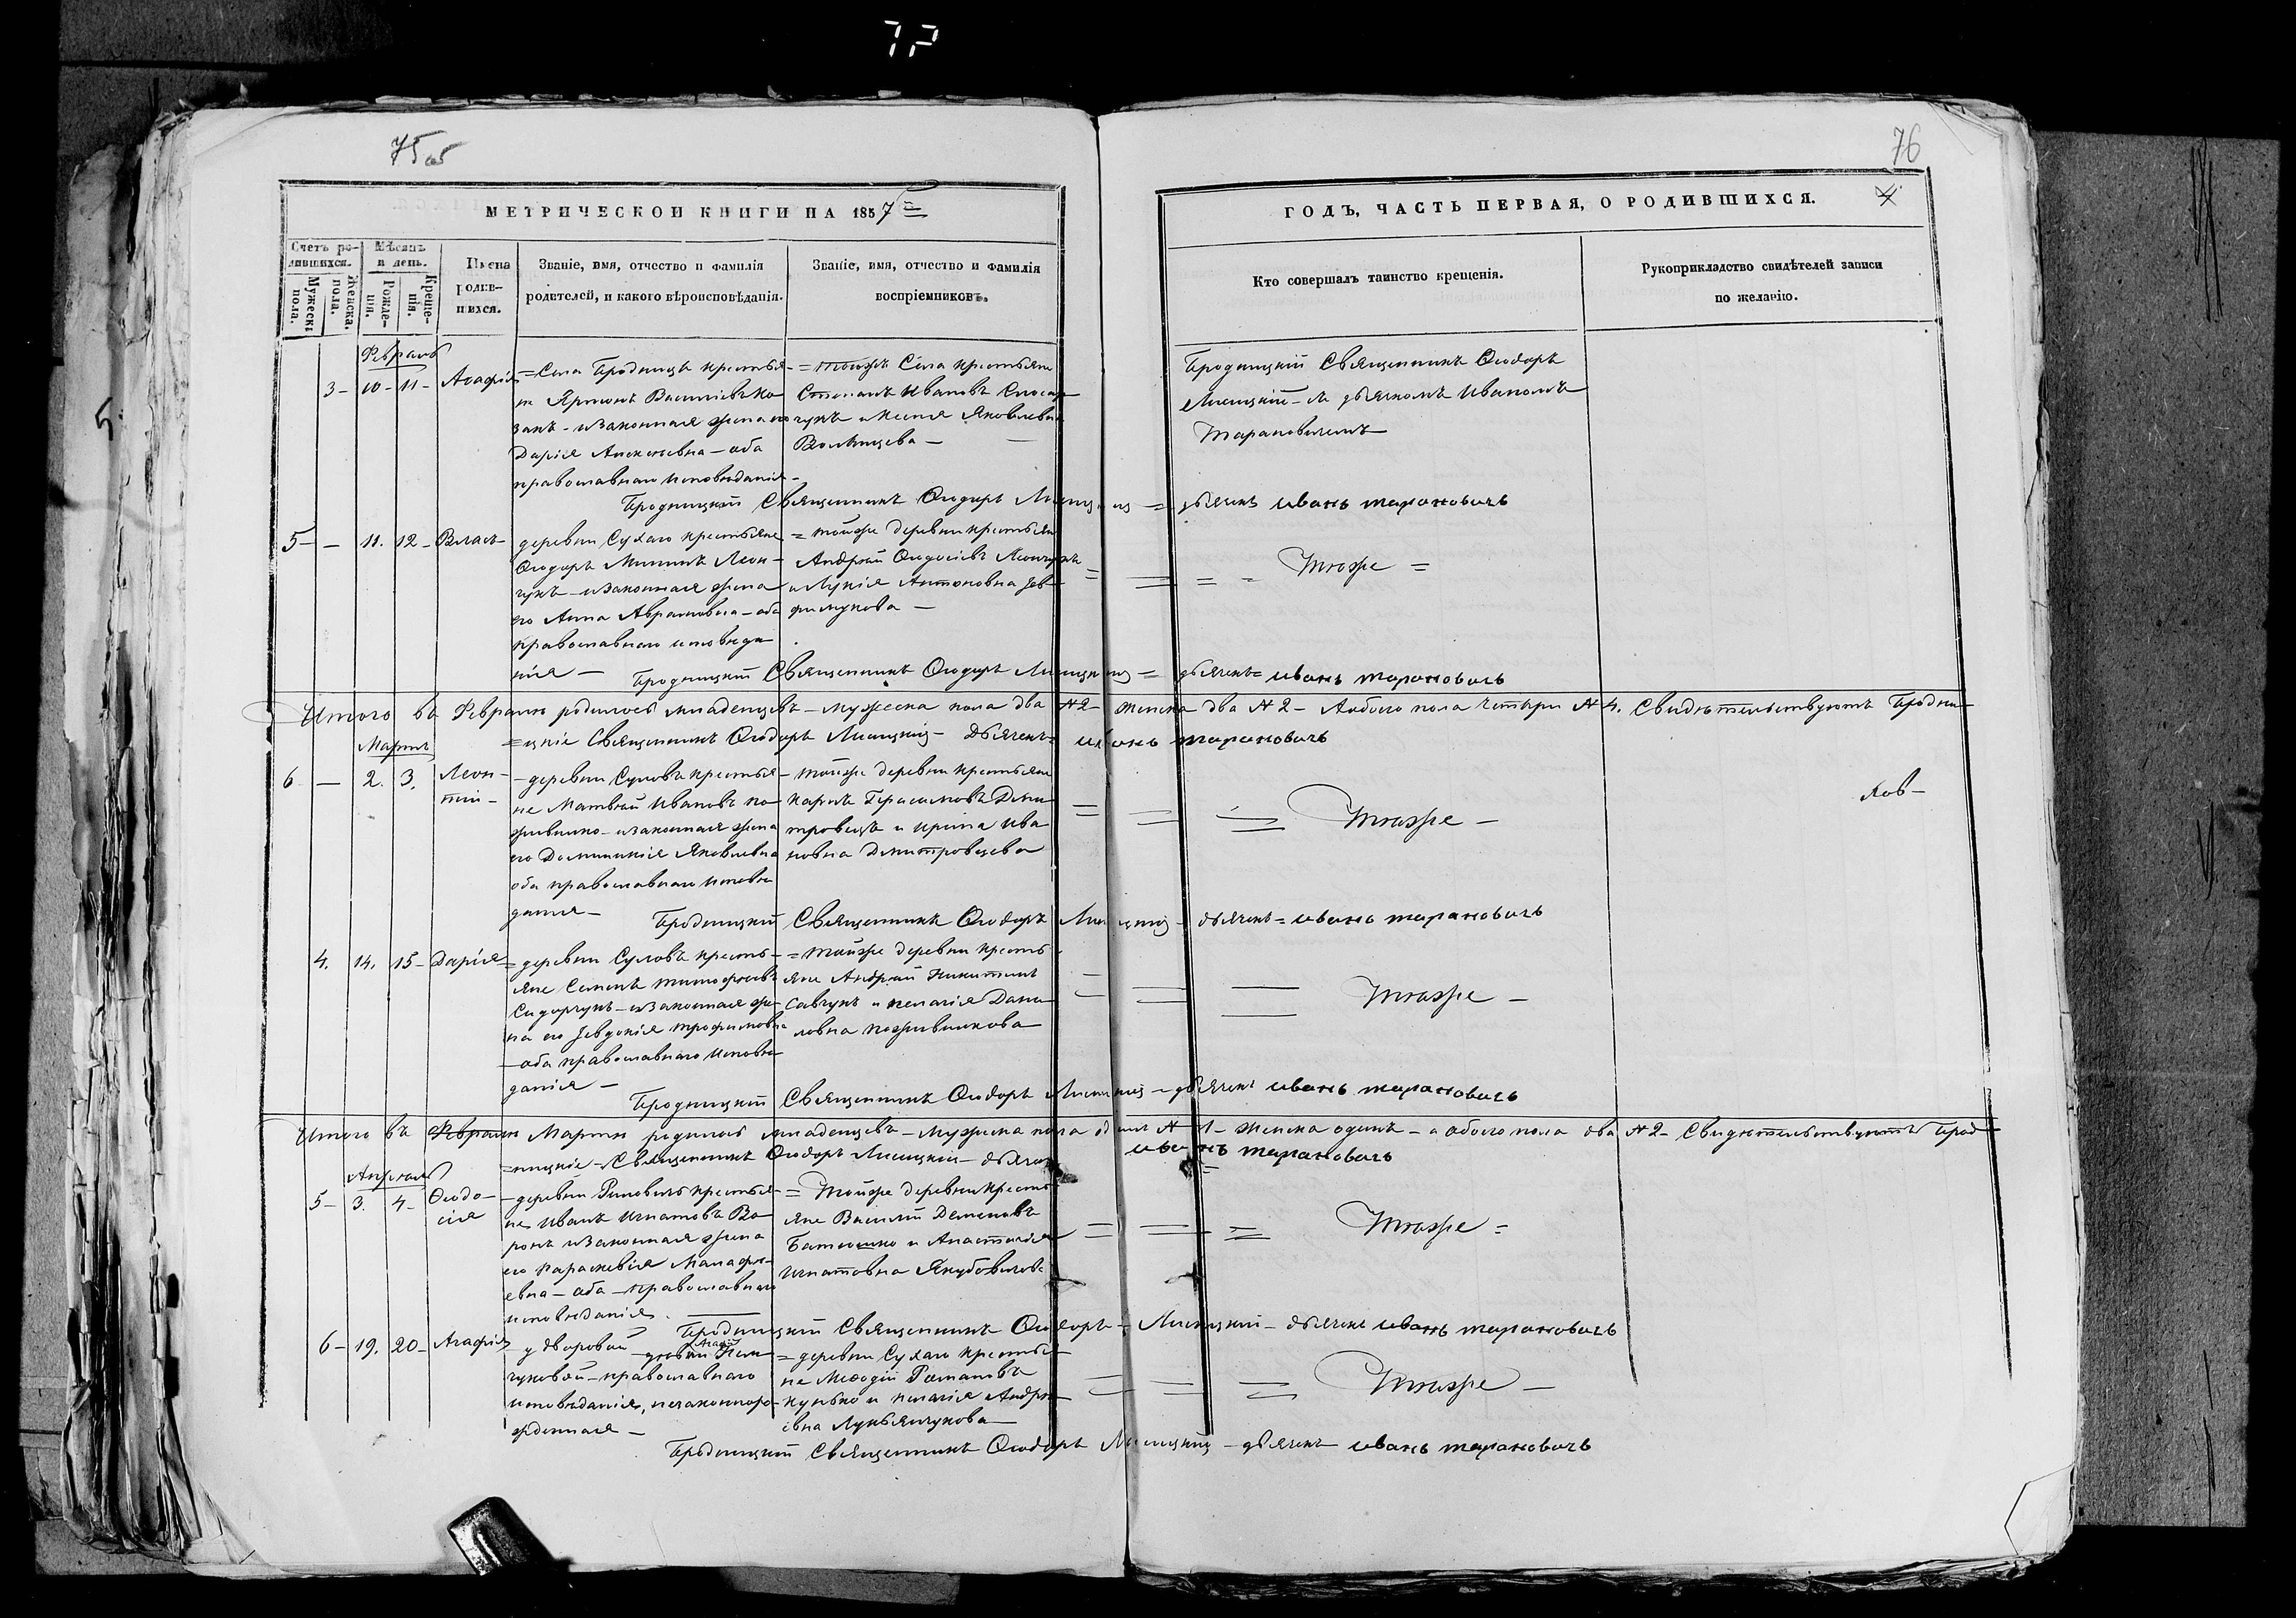 75об
76
МЕТРИЧЕСКОЙ КНИГИ НА 1857
ГОДЪ, ЧАСТЬ ПЕРВАЯ, О РОДИВШИХСЯ.
Счетъ родившихся.
Мужеска пола.
Женска. пола.
Мѣсяцъ и день.
Рожденія.
Крещенія.
Имена родившихся.
Званіе, имя, отчество и фамилія
родителей, и какого вѣроисповѣданія.
Званіе, имя, отчество и фамилія
воспріемниковъ.
Кто совершалъ таинство крещенія.
Рукоприкладство свидѣтелей записи
по желанію.
Февраль
3 - 10 - 11 - Агафія
= Села Бродницы крестья-
не Артонъ Василіевъ Ко
закъ - изаконная жена его
Дарія Алексѣевна - оба
православнаго исповѣданія -
= тогожъ Села крестьяне
Стефанъ Ивановъ
и Яковлевна
Бродницкій Священникъ Ѳеодоръ
Лисицкій - съ дьячкомъ Иваномъ
Тарановичемъ
Бродницкій Священникъ Ѳеодоръ Лисицкій = дьячекъ иванъ тарановичъ
5 - - 11. 12 - Власъ -
деревни Сухаго крестьяне
Ѳеодоръ Мининъ Леон-
чукъ - изаконная жена
его Анна Аврамовна - оба
православнаго исповѣда
нія -
= тойже деревни крестьяне
Андрей Ѳеодосіевъ Леончукъ
и Лукія Антоновна Јев-
фимукова -
Тоже =
Бродницкій Священникъ Ѳеодоръ Лисицкій = дьячекъ = иванъ тарановичъ
Итого въ Февралѣ родилось младенцевъ - мужеска пола два №2 - Женска два №2 - Аобоего пола четыри №4. Свидѣтельствуютъ Бродни-
=цкіе Священникъ Ѳеодоръ Лисицкій - Дьячекъ = иванъ тарановичъ
Мартъ
6 - 2. 3. Леон-
тій -
- деревни Суловъ крестья-
не Матвѣй Ивановъ По
живилко - изаконная жена
его Доминикія Яковлевна
оба православнаго исповѣ
данія -
- тойже деревни крестьяне
Карпъ Герасимовъ Дми
тровецъ и Ирина Ива
новна Дмитровцева
Тоже -
Ков-
Бродницкій Священникъ Ѳеодоръ Лисицкій - дьячекъ = иванъ тарановичъ
4. 14. 15 - Дарія
= деревни Суловъ кресть-
яне Семенъ тимофѣевъ
Сидорчукъ - изаконная же-
на его Јевдокія трофимовна
- оба православнаго исповѣ
данія -
= тойже деревни кресть
яне Андрей Никитинъ
Савчукъ и Пелагія Дани
ловна поживилкова
Тоже -
Бродницкій Священникъ Ѳеодоръ Лисицкій - дьячекъ иванъ тарановичъ
Итого въ Февралѣ Мартѣ родилось младенцевъ - Мужеска пола одинъ №1 - Женска одинъ - а обоего пола два №2 - Свидѣтельствуютъ Брод-
=ницкіе - Священникъ Ѳеодоръ Лисицкій - дьячекъ иванъ тарановичъ
Апрѣль
5 - 3. 4 - Ѳеодо-
сія
- деревни крестья-
не Иванъ Игнатовъ Во-
ронъ изаконная жена
его Параскевія Малафѣ-
евна - оба - православнаго
исповѣданія.
= Тойже деревни кресть
яне Василій Деменовъ
Батюшко и Анастасія
Игнатовна Якубовичева
Тоже =
Бродницкій Священникъ Ѳеодоръ - Лисицкій - дьячекъ иванъ тарановичъ
6 - 19. 20 - Агафія
у дворовой дѣвки
чуковой - православнаго
исповѣданія, незаконноро-
жденная -
= деревни Сухаго крестья-
не Меѳодій Романовъ
Кунько и Пелагія Андрѣ-
евна Лукьянчукова
Тоже -
Бродницкій Священникъ Ѳеодоръ Лисицкій - дьячекъ иванъ тарановичъ